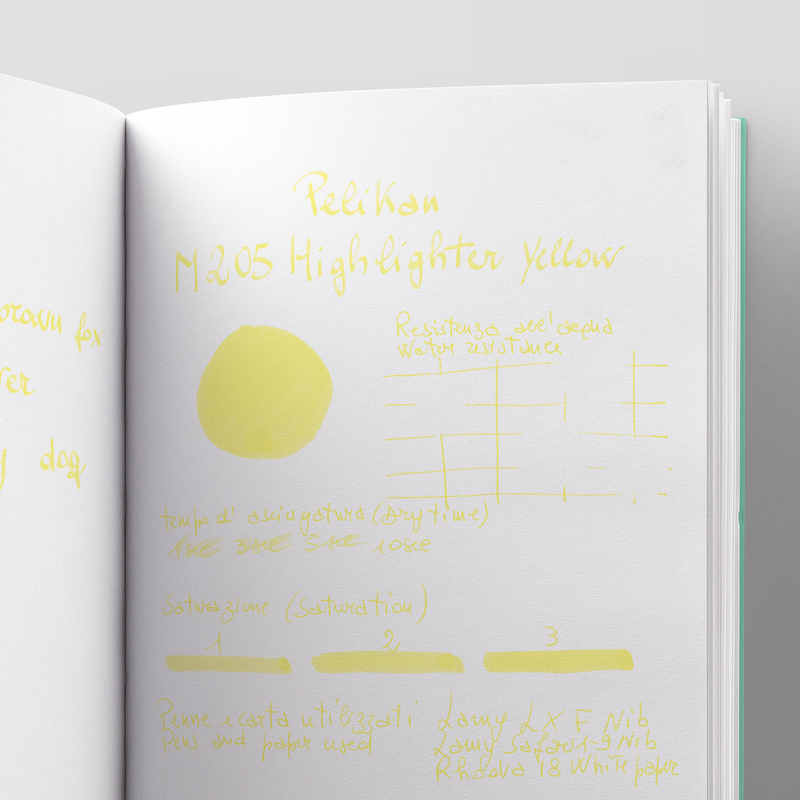 brown fox
dog
Pelikan
M205 Highlighter Yellow
Resistenza all'acqua
Water resistance
tempo di asciugatura (Dry time)
1sec 3sec 5sec 10sec
Saturazione (Saturation)
1 2 3
Penne e carta utilizzati
Pens and paper used
Lamy LX F Nib
Lamy Safari 1-9 Nib
Rhodia 18 White paper